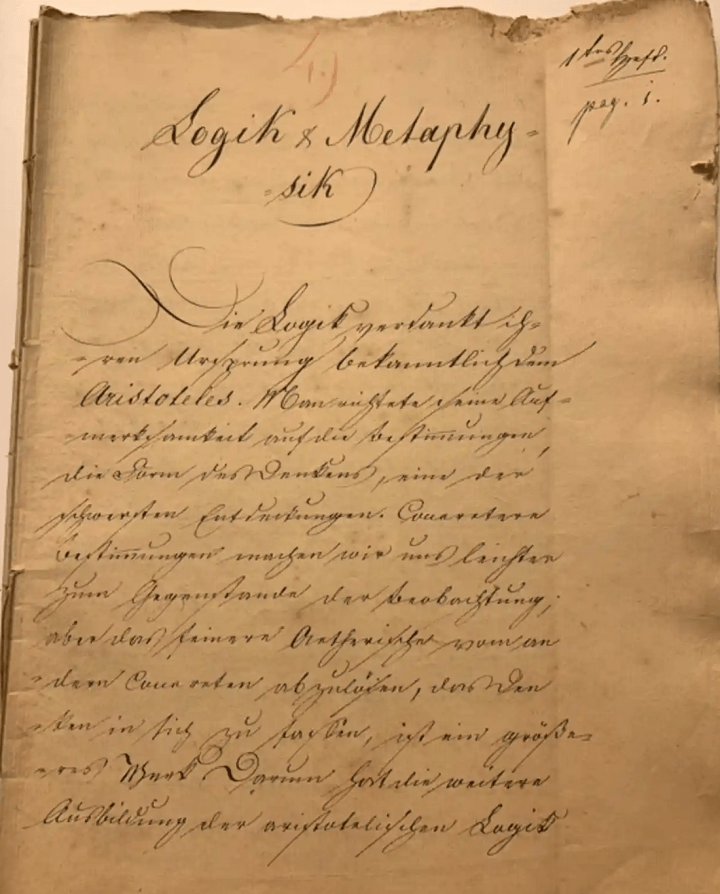 4.)
1tes Heft.
pag. 1.
Logik & Metaphy=
=sik
Die Logik verdankt ih=
=ren Ursprung bekanntlich dem
Aristoteles. Man richtete seine Auf=
=merksamkeit auf die Bestimmungen,
die Form des Denkens, eine der
schwersten Entdeckungen. Concretere
Bestimmungen machen wir uns leichter
zum Gegenstande der Beobachtung;
aber das feinere Aetherische vom an
=dern Concreten abzulösen, das Den
=ken in sich zu fassen, ist ein größe=
=res Werk Darum hat die weitere
Ausbildung der aristotelischen Logik